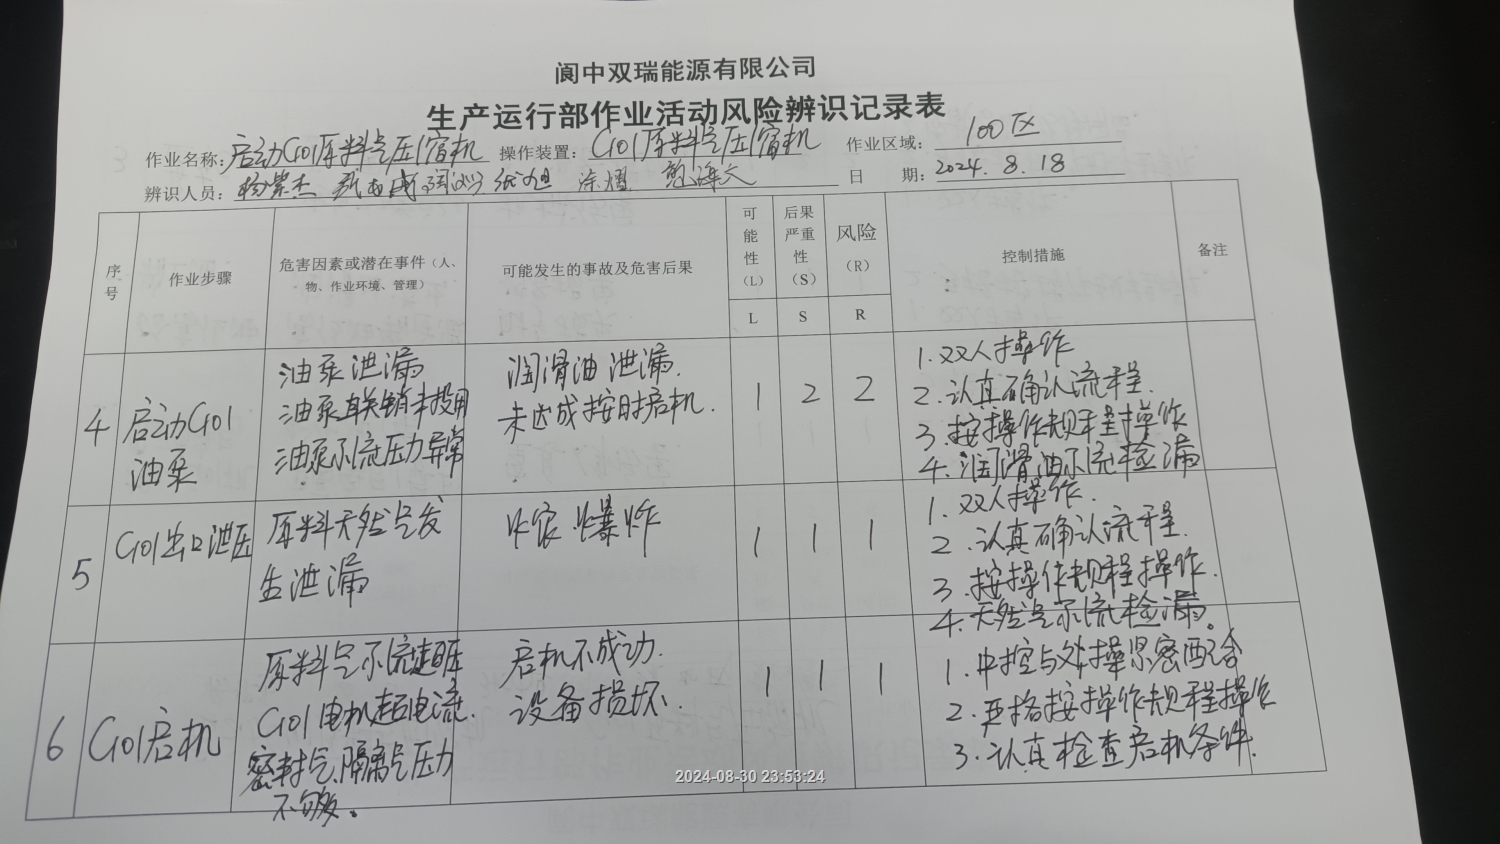 阆中双瑞能源有限公司
生产运行部作业活动风险辨识记录表
作业名称: 启动C01原料气压缩机 操作装置: C01原料气压缩机 作业区域: 100区
辨识人员: 杨紫杰 张旭 涂熠 日 期: 2024. 8. 18
序号 作业步骤 危害因素或潜在事件（人、物、作业环境、管理） 可能发生的事故及危害后果 可能性（L） 后果严重性（S） 风险（R） 控制措施 备注
L S R
4 启动C01油泵
油泵泄漏
油泵联锁未投用
油泵示流压力异常
润滑油泄漏.
未达成按时启机.
1 2 2
1.双人操作
2.认真确认流程.
3.按操作规程操作
4.润滑油示流检漏
5 C01出口泄压
原料天然气发
生泄漏
炸裂.爆炸
1 1 1
1.双人操作.
2.认真确认流程.
3.按操作规程操作.
4.天然气示流检漏。
6 C01启机
原料气示流超压
C01电机超电流.
密封气隔离气压力
不够。
启机不成功.
设备损坏.
1 1 1
1.中控与外操紧密配合
2.严格按操作规程操作
3.认真检查启机条件.
2024-08-30 23:53:24